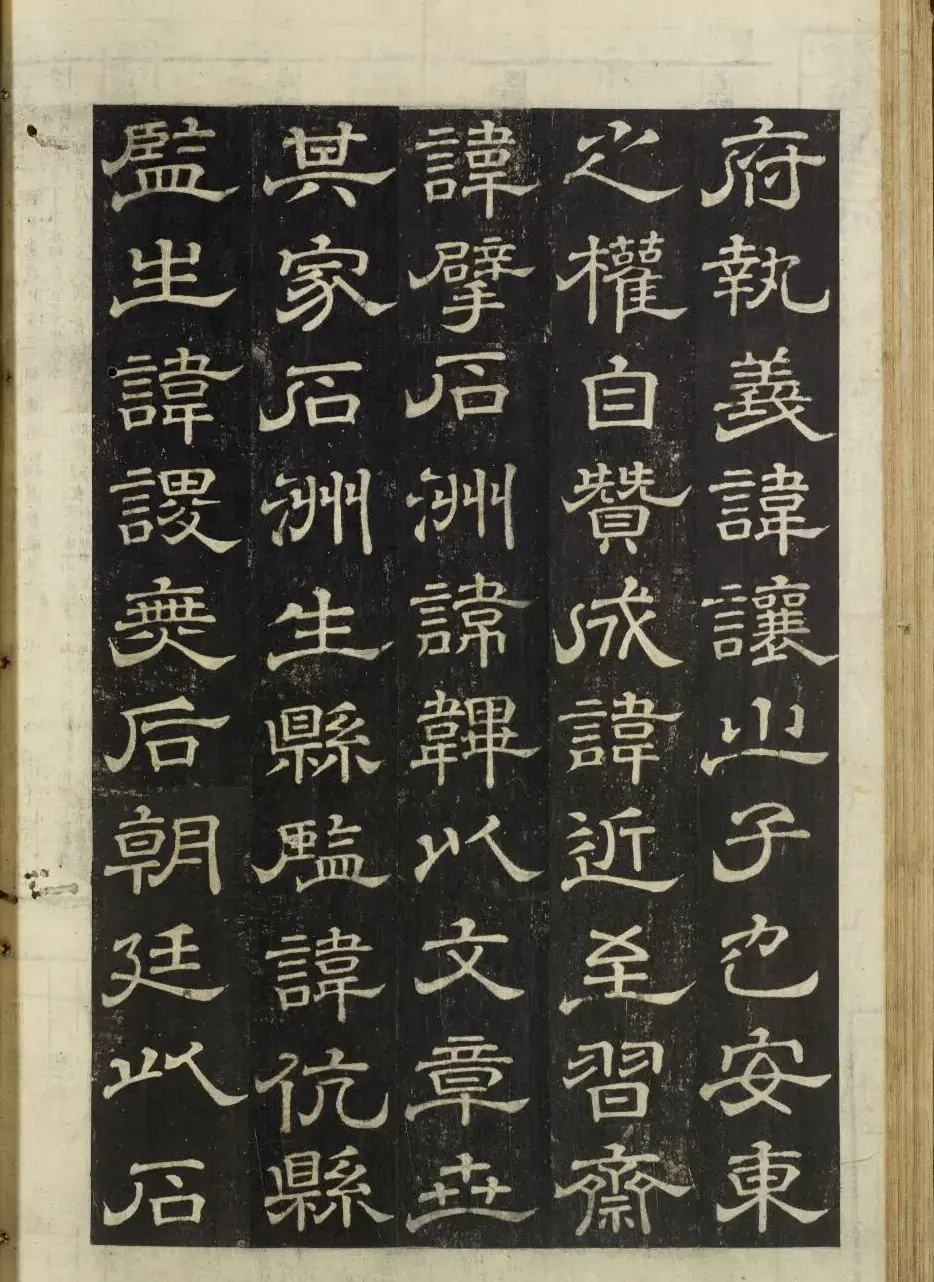 府執義諱讓之子也安東
之權自贊成諱近至習齋
諱擘石洲諱韠以文章世
其家石洲生縣監諱伉縣
監生諱謖無后朝廷以石